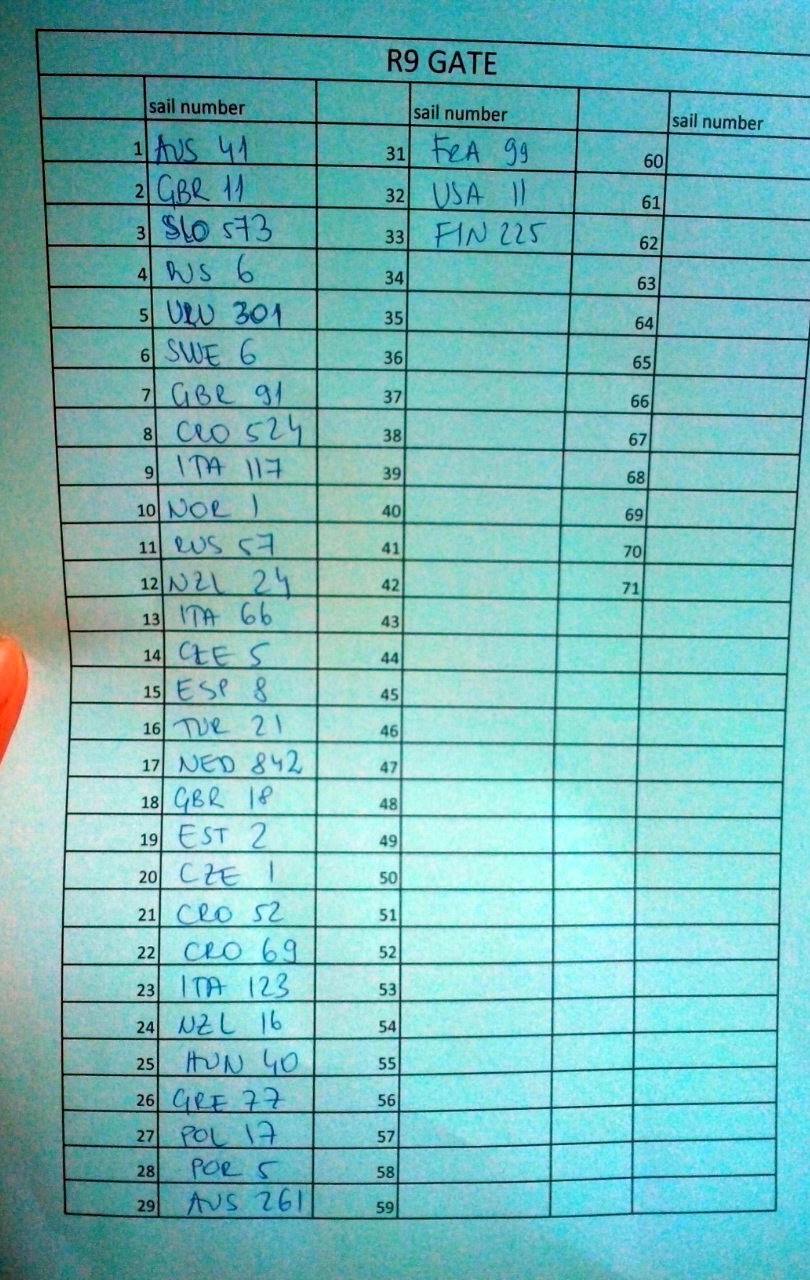 R9 GATE
sail number sail number sail number
1 AUS 41 31 FRA 99 60
2 GBR 11 32 USA 11 61
3 SLO 573 33 FIN 225 62
4 RUS 6 34 63
5 URU 301 35 64
6 SWE 6 36 65
7 GBR 91 37 66
8 CRO 524 38 67
9 ITA 117 39 68
10 NOR 1 40 69
11 RUS 57 41 70
12 NZL 24 42 71
13 ITA 66 43
14 CZE 5 44
15 ESP 8 45
16 TUR 21 46
17 NED 842 47
18 GBR 18 48
19 EST 2 49
20 CZE 1 50
21 CRO 52 51
22 CRO 69 52
23 ITA 123 53
24 NZL 16 54
25 HUN 40 55
26 GRE 77 56
27 POL 17 57
28 POR 5 58
29 AUS 261 59